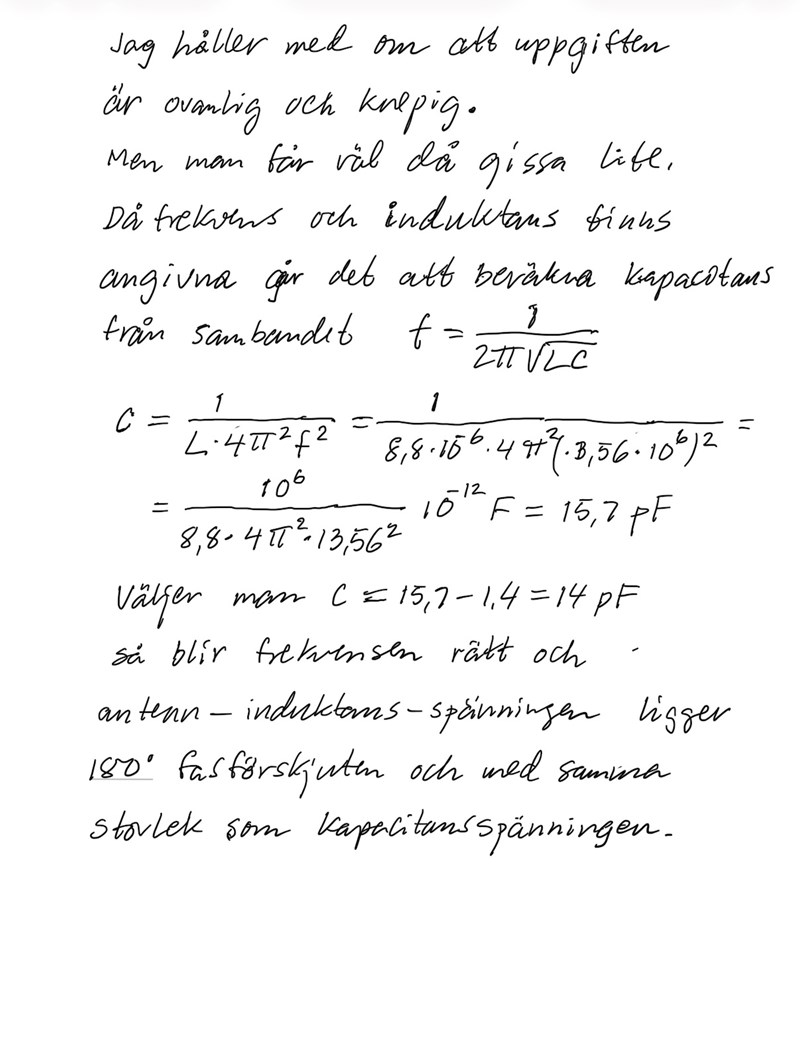 Jag håller med om att uppgiften
är ovanlig och knepig.
Men man får väl då gissa lite.
Då frekvens och induktans finns
angivna går det att beräkna kapacitans
från sambandet f = 1 / (2π√LC)
C = 1 / (L·4π²f²) = 1 / (8,8·10⁻⁶·4π²(·13,56·10⁶)² =
= 10⁶ / (8,8·4π²·13,56²) 10⁻¹² F = 15,7 pF
Väljer man C = 15,7 – 1,4 = 14 pF
så blir frekvensen rätt och
antenn – induktans – spänningen ligger
180° fasförskjuten och med samma
storlek som kapacitansspänningen.